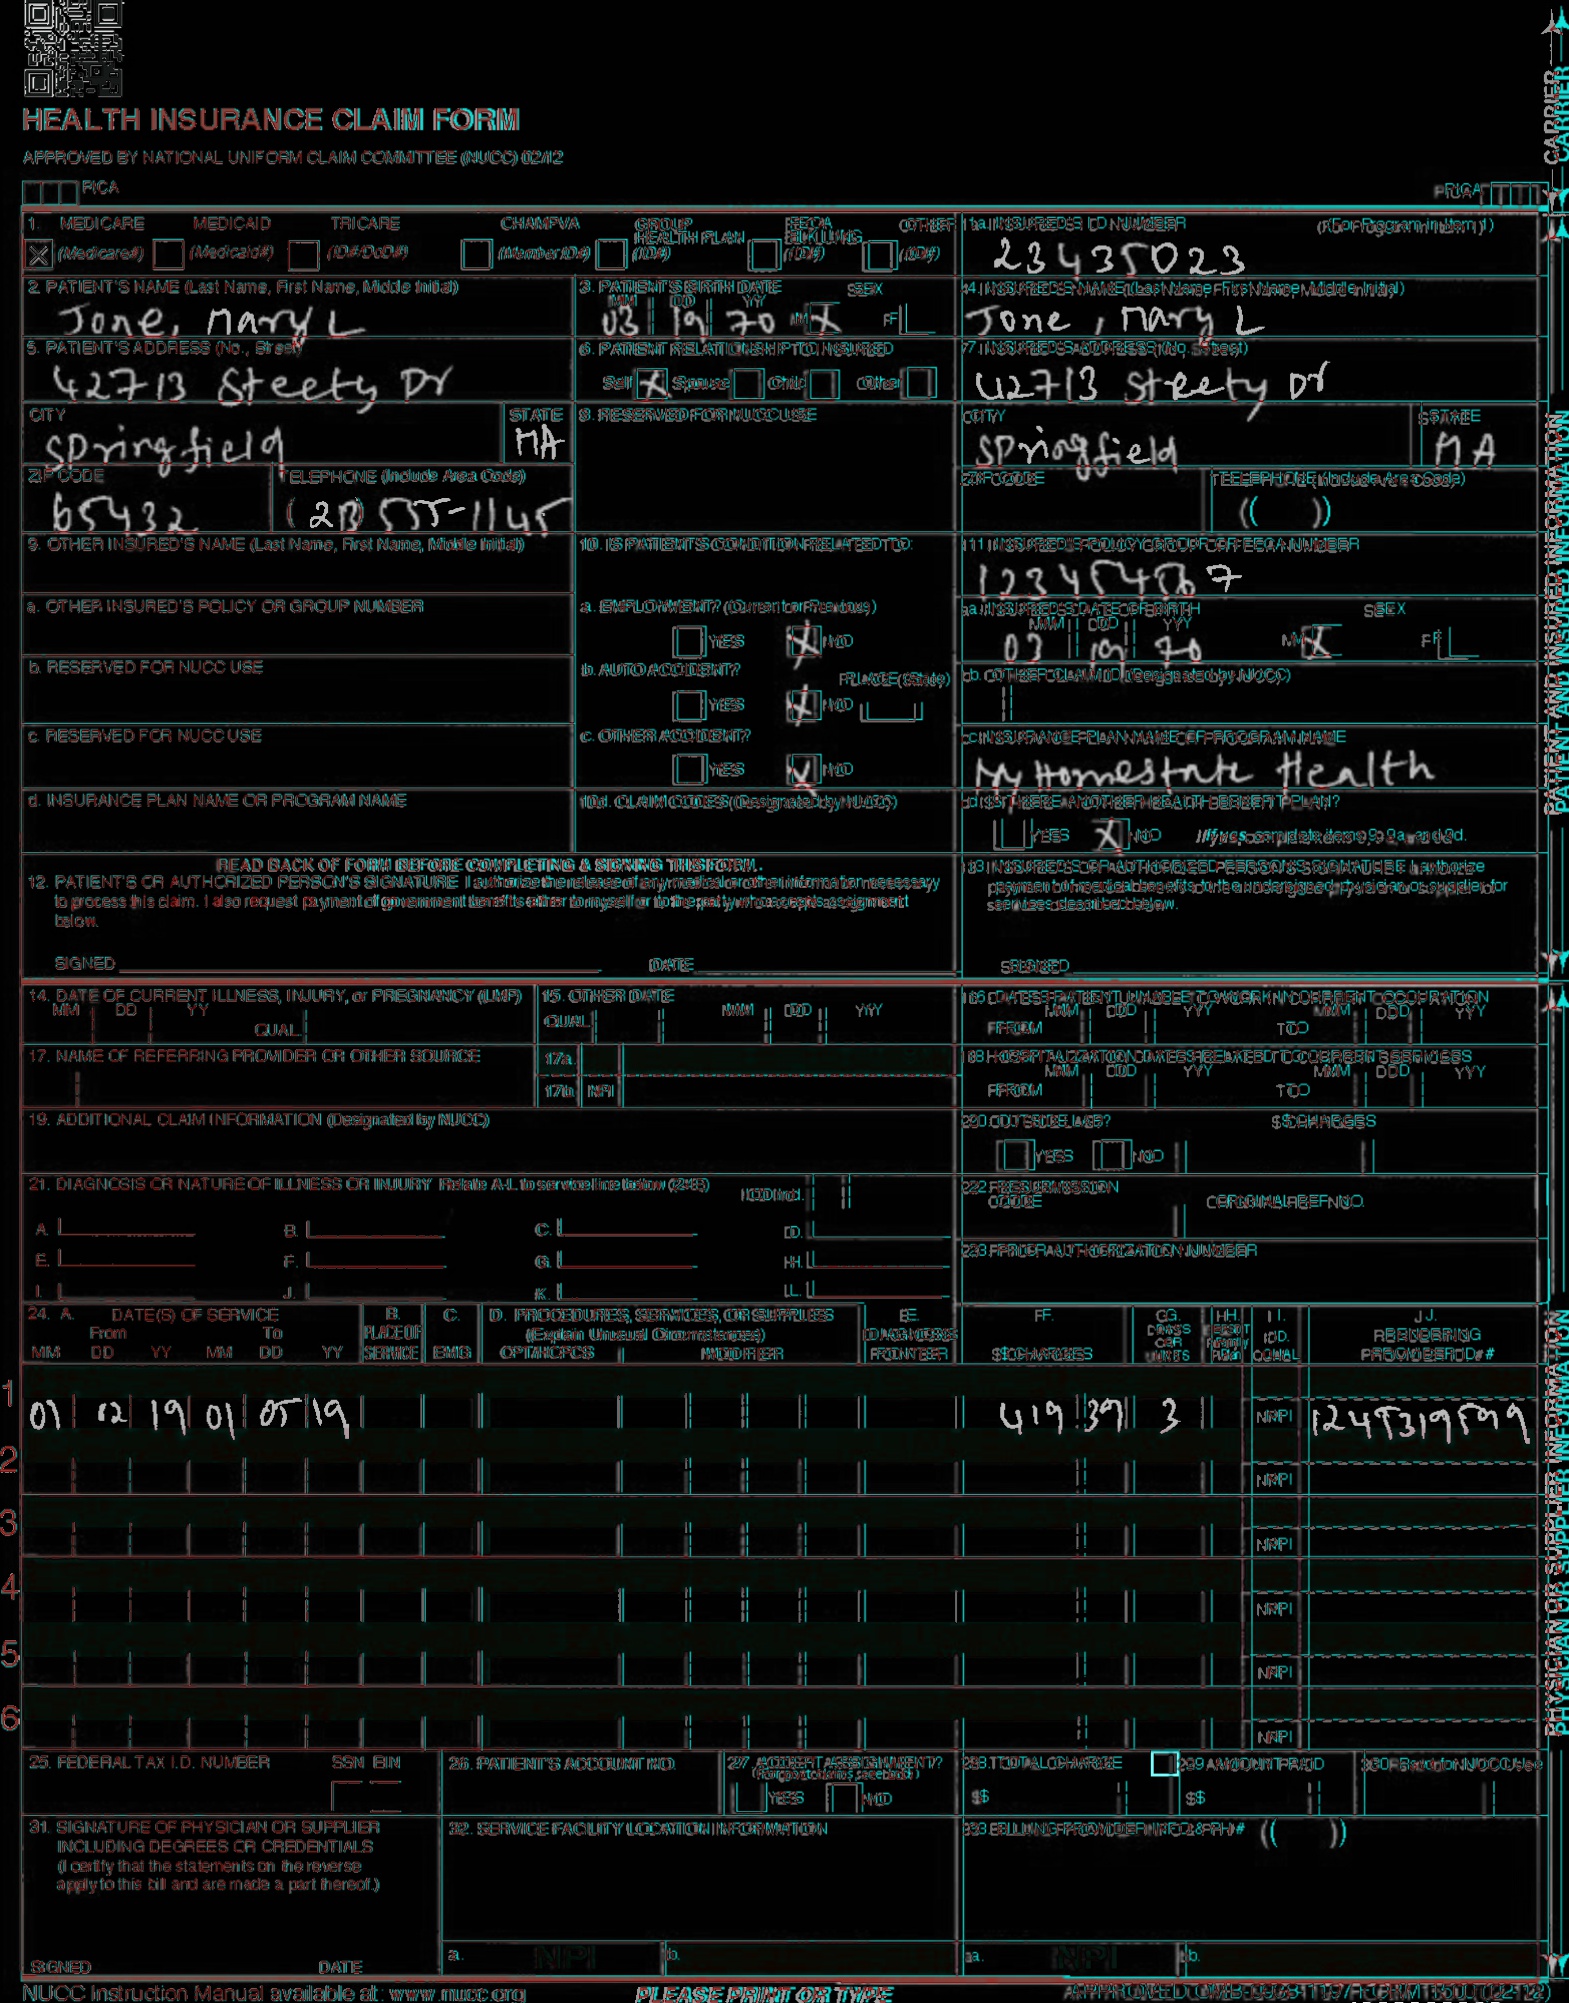 HEALTH INSURANCE CLAIM FORM
APPROVED BY NATIONAL UNIFORM CLAIM COMMITTEE (NUCC) 02/12
PICA
PICA
CARRIER
1. MEDICARE MEDICAID TRICARE CHAMPVA GROUP HEALTH PLAN FECA BLK LUNG OTHER
(Medicare#) (Medicaid#) (ID#/DoD#) (Member ID#) (ID#) (ID#) (ID#)
1a. INSURED'S I.D. NUMBER (For Program in Item 1)
23435023
2. PATIENT'S NAME (Last Name, First Name, Middle Initial)
Jone, Mary L
3. PATIENT'S BIRTH DATE SEX
MM DD YY
03 19 70 M X F
4. INSURED'S NAME (Last Name, First Name, Middle Initial)
Jone, Mary L
5. PATIENT'S ADDRESS (No., Street)
42713 Steety Dr
6. PATIENT RELATIONSHIP TO INSURED
Self X Spouse Child Other
7. INSURED'S ADDRESS (No., Street)
42713 Steety Dr
CITY STATE
Springfield MA
8. RESERVED FOR NUCC USE
CITY STATE
Springfield MA
ZIP CODE TELEPHONE (Include Area Code)
65432 (213) 555-1145
ZIP CODE TELEPHONE (Include Area Code)
( )
9. OTHER INSURED'S NAME (Last Name, First Name, Middle Initial)
10. IS PATIENT'S CONDITION RELATED TO:
11. INSURED'S POLICY GROUP OR FECA NUMBER
a. OTHER INSURED'S POLICY OR GROUP NUMBER
a. EMPLOYMENT? (Current or Previous)
YES X NO
a. INSURED'S DATE OF BIRTH SEX
MM DD YY
03 19 70 M X F
b. RESERVED FOR NUCC USE
b. AUTO ACCIDENT? PLACE (State)
YES X NO
b. OTHER CLAIM ID (Designated by NUCC)
c. RESERVED FOR NUCC USE
c. OTHER ACCIDENT?
YES X NO
c. INSURANCE PLAN NAME OR PROGRAM NAME
My Homestate Health
d. INSURANCE PLAN NAME OR PROGRAM NAME
10d. CLAIM CODES (Designated by NUCC)
d. IS THERE ANOTHER HEALTH BENEFIT PLAN?
YES X NO If yes, complete items 9, 9a, and 9d.
READ BACK OF FORM BEFORE COMPLETING & SIGNING THIS FORM.
12. PATIENT'S OR AUTHORIZED PERSON'S SIGNATURE I authorize the release of any medical or other information necessary
to process this claim. I also request payment of government benefits either to myself or to the party who accepts assignment
below.
SIGNED DATE
13. INSURED'S OR AUTHORIZED PERSON'S SIGNATURE I authorize
payment of medical benefits to the undersigned physician or supplier for
services described below.
SIGNED
PATIENT AND INSURED INFORMATION
14. DATE OF CURRENT ILLNESS, INJURY, or PREGNANCY (LMP)
MM DD YY
QUAL.
15. OTHER DATE
QUAL. MM DD YY
16. DATES PATIENT UNABLE TO WORK IN CURRENT OCCUPATION
MM DD YY MM DD YY
FROM TO
17. NAME OF REFERRING PROVIDER OR OTHER SOURCE
17a.
17b. NPI
18. HOSPITALIZATION DATES RELATED TO CURRENT SERVICES
MM DD YY MM DD YY
FROM TO
19. ADDITIONAL CLAIM INFORMATION (Designated by NUCC)
20. OUTSIDE LAB? $ CHARGES
YES NO
21. DIAGNOSIS OR NATURE OF ILLNESS OR INJURY Relate A-L to service line below (24E)
ICD Ind.
A. B. C. D.
E. F. G. H.
I. J. K. L.
22. RESUBMISSION CODE ORIGINAL REF. NO.
23. PRIOR AUTHORIZATION NUMBER
24. A. DATE(S) OF SERVICE B. C. D. PROCEDURES, SERVICES, OR SUPPLIES E. F. G. H. I. J.
From To PLACE OF (Explain Unusual Circumstances) DIAGNOSIS DAYS OR EPSDT Family ID. RENDERING
MM DD YY MM DD YY SERVICE EMG CPT/HCPCS MODIFIER POINTER $ CHARGES UNITS Plan QUAL. PROVIDER ID. #
1 01 02 19 01 05 19 419 39 3 NPI 1245319599
2 NPI
3 NPI
4 NPI
5 NPI
6 NPI
PHYSICIAN OR SUPPLIER INFORMATION
25. FEDERAL TAX I.D. NUMBER SSN EIN
26. PATIENT'S ACCOUNT NO.
27. ACCEPT ASSIGNMENT?
(For govt. claims, see back)
YES NO
28. TOTAL CHARGE
$
29. AMOUNT PAID
$
30. Rsvd for NUCC Use
31. SIGNATURE OF PHYSICIAN OR SUPPLIER
INCLUDING DEGREES OR CREDENTIALS
(I certify that the statements on the reverse
apply to this bill and are made a part thereof.)
SIGNED DATE
32. SERVICE FACILITY LOCATION INFORMATION
a. NPI b.
33. BILLING PROVIDER INFO & PH # ( )
a. NPI b.
NUCC Instruction Manual available at: www.nucc.org
PLEASE PRINT OR TYPE